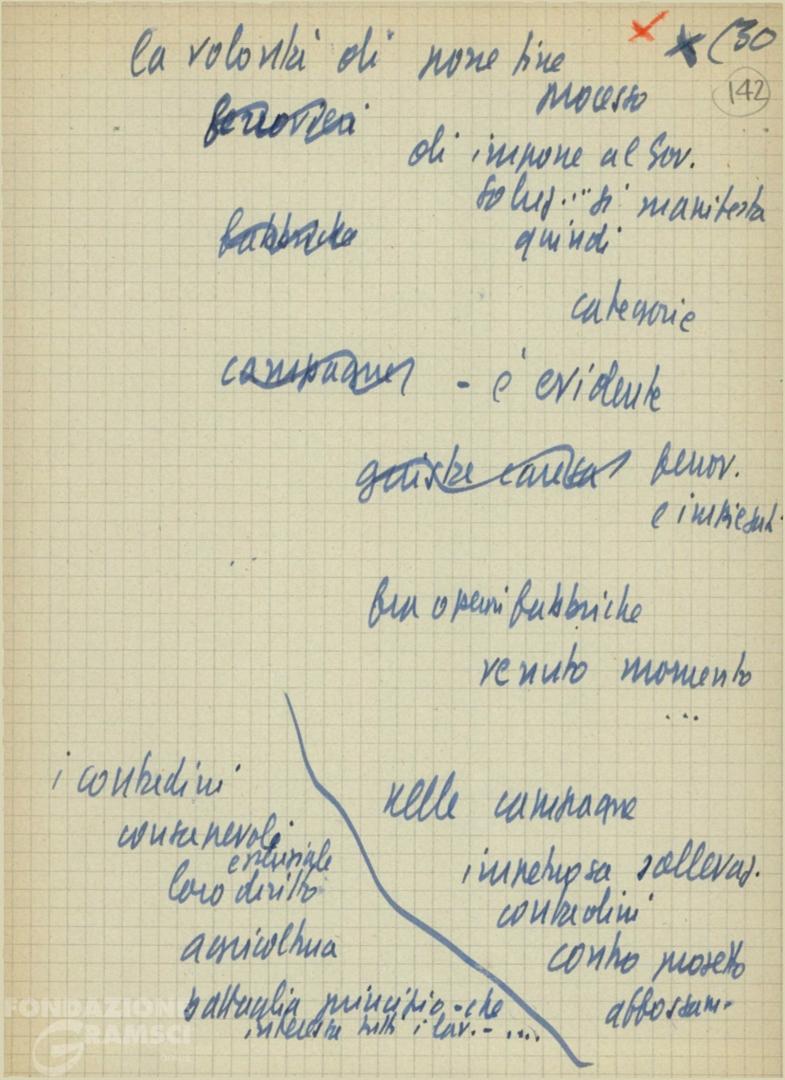 (30
142
la volontà di porre fine
processo
ferrovieri
di imporre al Gov.
soluz... si manifesta
fabbriche
quindi
categorie
campagne - è evidente
giusta causa ferrov.
e impiegati
fra operai fabbriche
venuto momento
...
i contadini
nelle campagne
consapevoli
essenziale
impetuosa sollevaz.
loro diritto
contadini
agricoltura
contro progetto
battaglia principio - che
abbossam.
interessa tutti i lav. - ....
FONDAZIONE
GRAMSCI